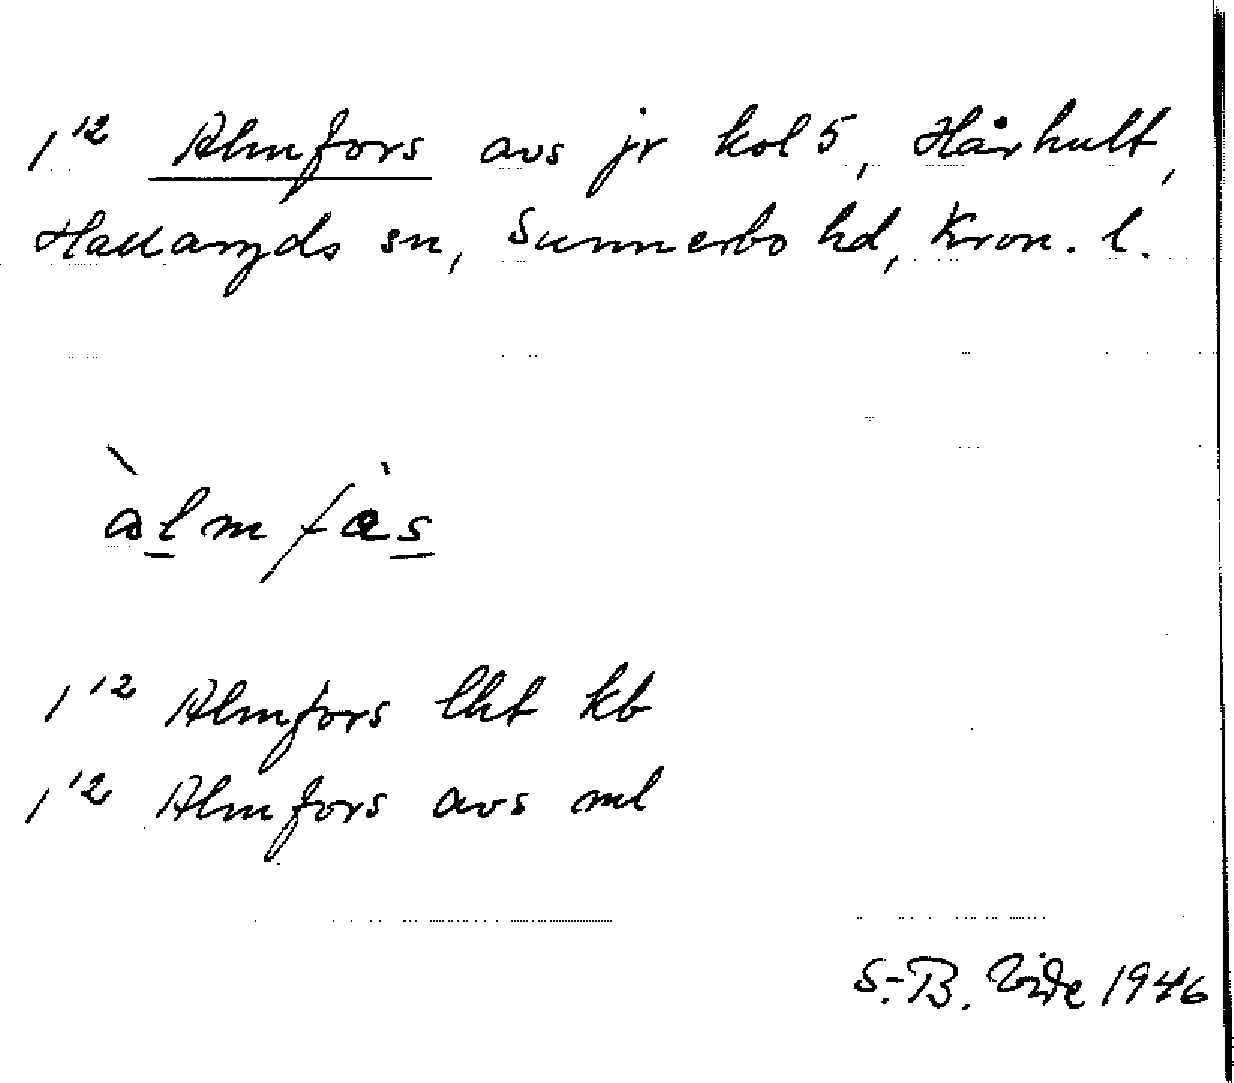 1¹² Almfors avs jr kol 5, Hårhult,
Hallaryds sn, Sunnerbo hd, Kron. l.
àlmfàs
1¹² Almfors lht kb
1¹² Almfors avs ml
S.-B. Vide 1946